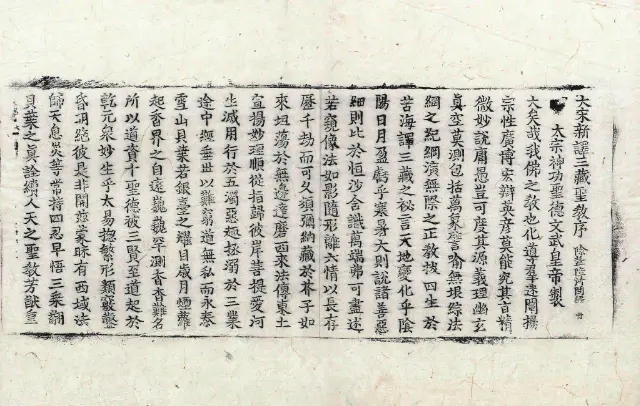 大宋新譯三藏聖教序
太宗神功聖德文武皇帝製
大矣哉我佛之教也化導羣迷闡揚
宗性廣博宏辯英彥莫能究其旨精
微妙說庸愚豈可度其源義理幽玄
真空莫測包括萬象譬喻無垠綜法
網之紀綱演無際之正教拔四生於
苦海譯三藏之秘言天地變化乎陰
陽日月盈虧乎寒暑大則說諸善惡
細則比於恒沙含識萬端弗可盡述
若窺像法如影隨形離六情以長存
歷千劫而可久須彌納藏於芥子如
來坦蕩於無邊達磨西來法傳東土
宣揚妙理順從指歸彼岸菩提愛河
生滅用行於五濁惡趣拯溺於三業
途中經垂世以難窮道無私而永泰
雪山貝葉若銀臺之耀目歲月煙蘿
起香界之自遠巍巍罕測杳杳難名
所以道資十聖德被三賢至道起於
乾元衆妙生乎太易揔繁形類竅鑿
昏明絕彼是非開茲蒙昧有西域法
師天息災等常持四忍早悟三乘翻
貝葉之真詮續人天之聖教芳猷重